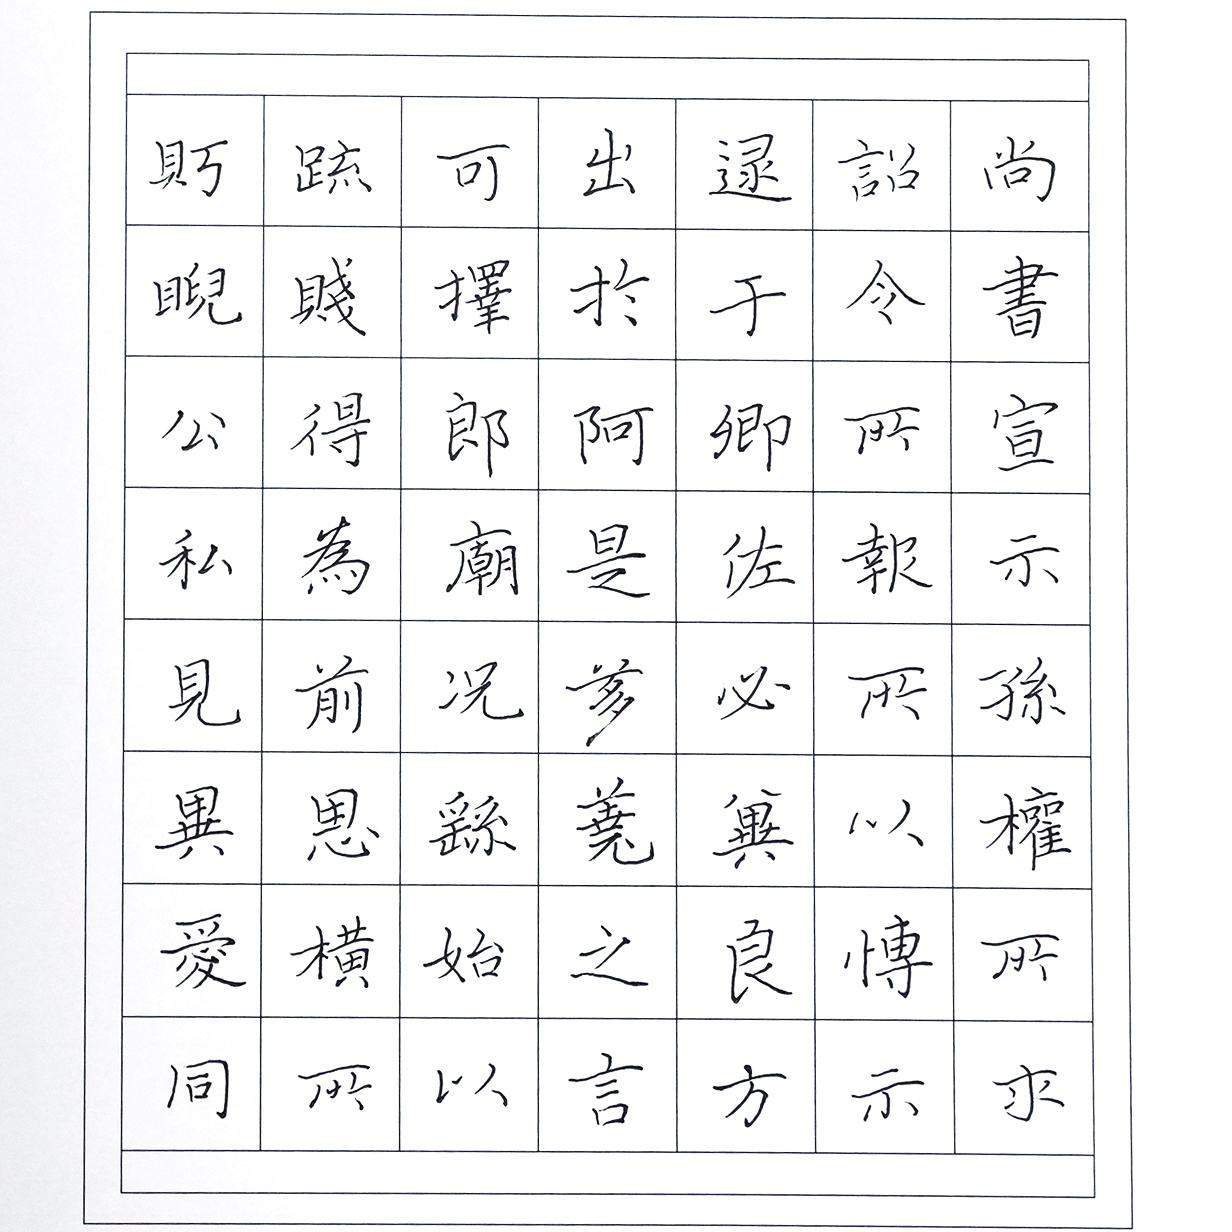 尚書宣示孫權所求
詔令所報所以博示
逮于卿佐必冀良方
出於阿是芻蕘之言
可擇郎廟况繇始以
疏賤得為前恩橫所
眄睨公私見異愛同